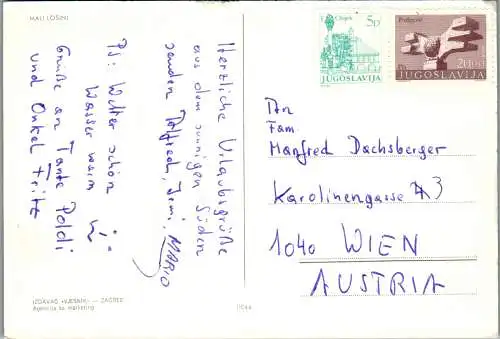 MALI LOŠINJ
Herzliche Urlaubsgrüße
aus dem sonnigen Süden
senden Wilfried, Irmi, MARIO
Ps: Wetter schön
Wasser warm
Grüße an Tante Poldi
und Onkel Fritz
IZDAVAČ »VJESNIK« — ZAGREB
Agencija za marketing
5D
JUGOSLAVIJA
Podgarić
JUGOSLAVIJA
An
Fam
Manfred Dachsberger
Karolinengasse 3
1040 WIEN
AUSTRIA